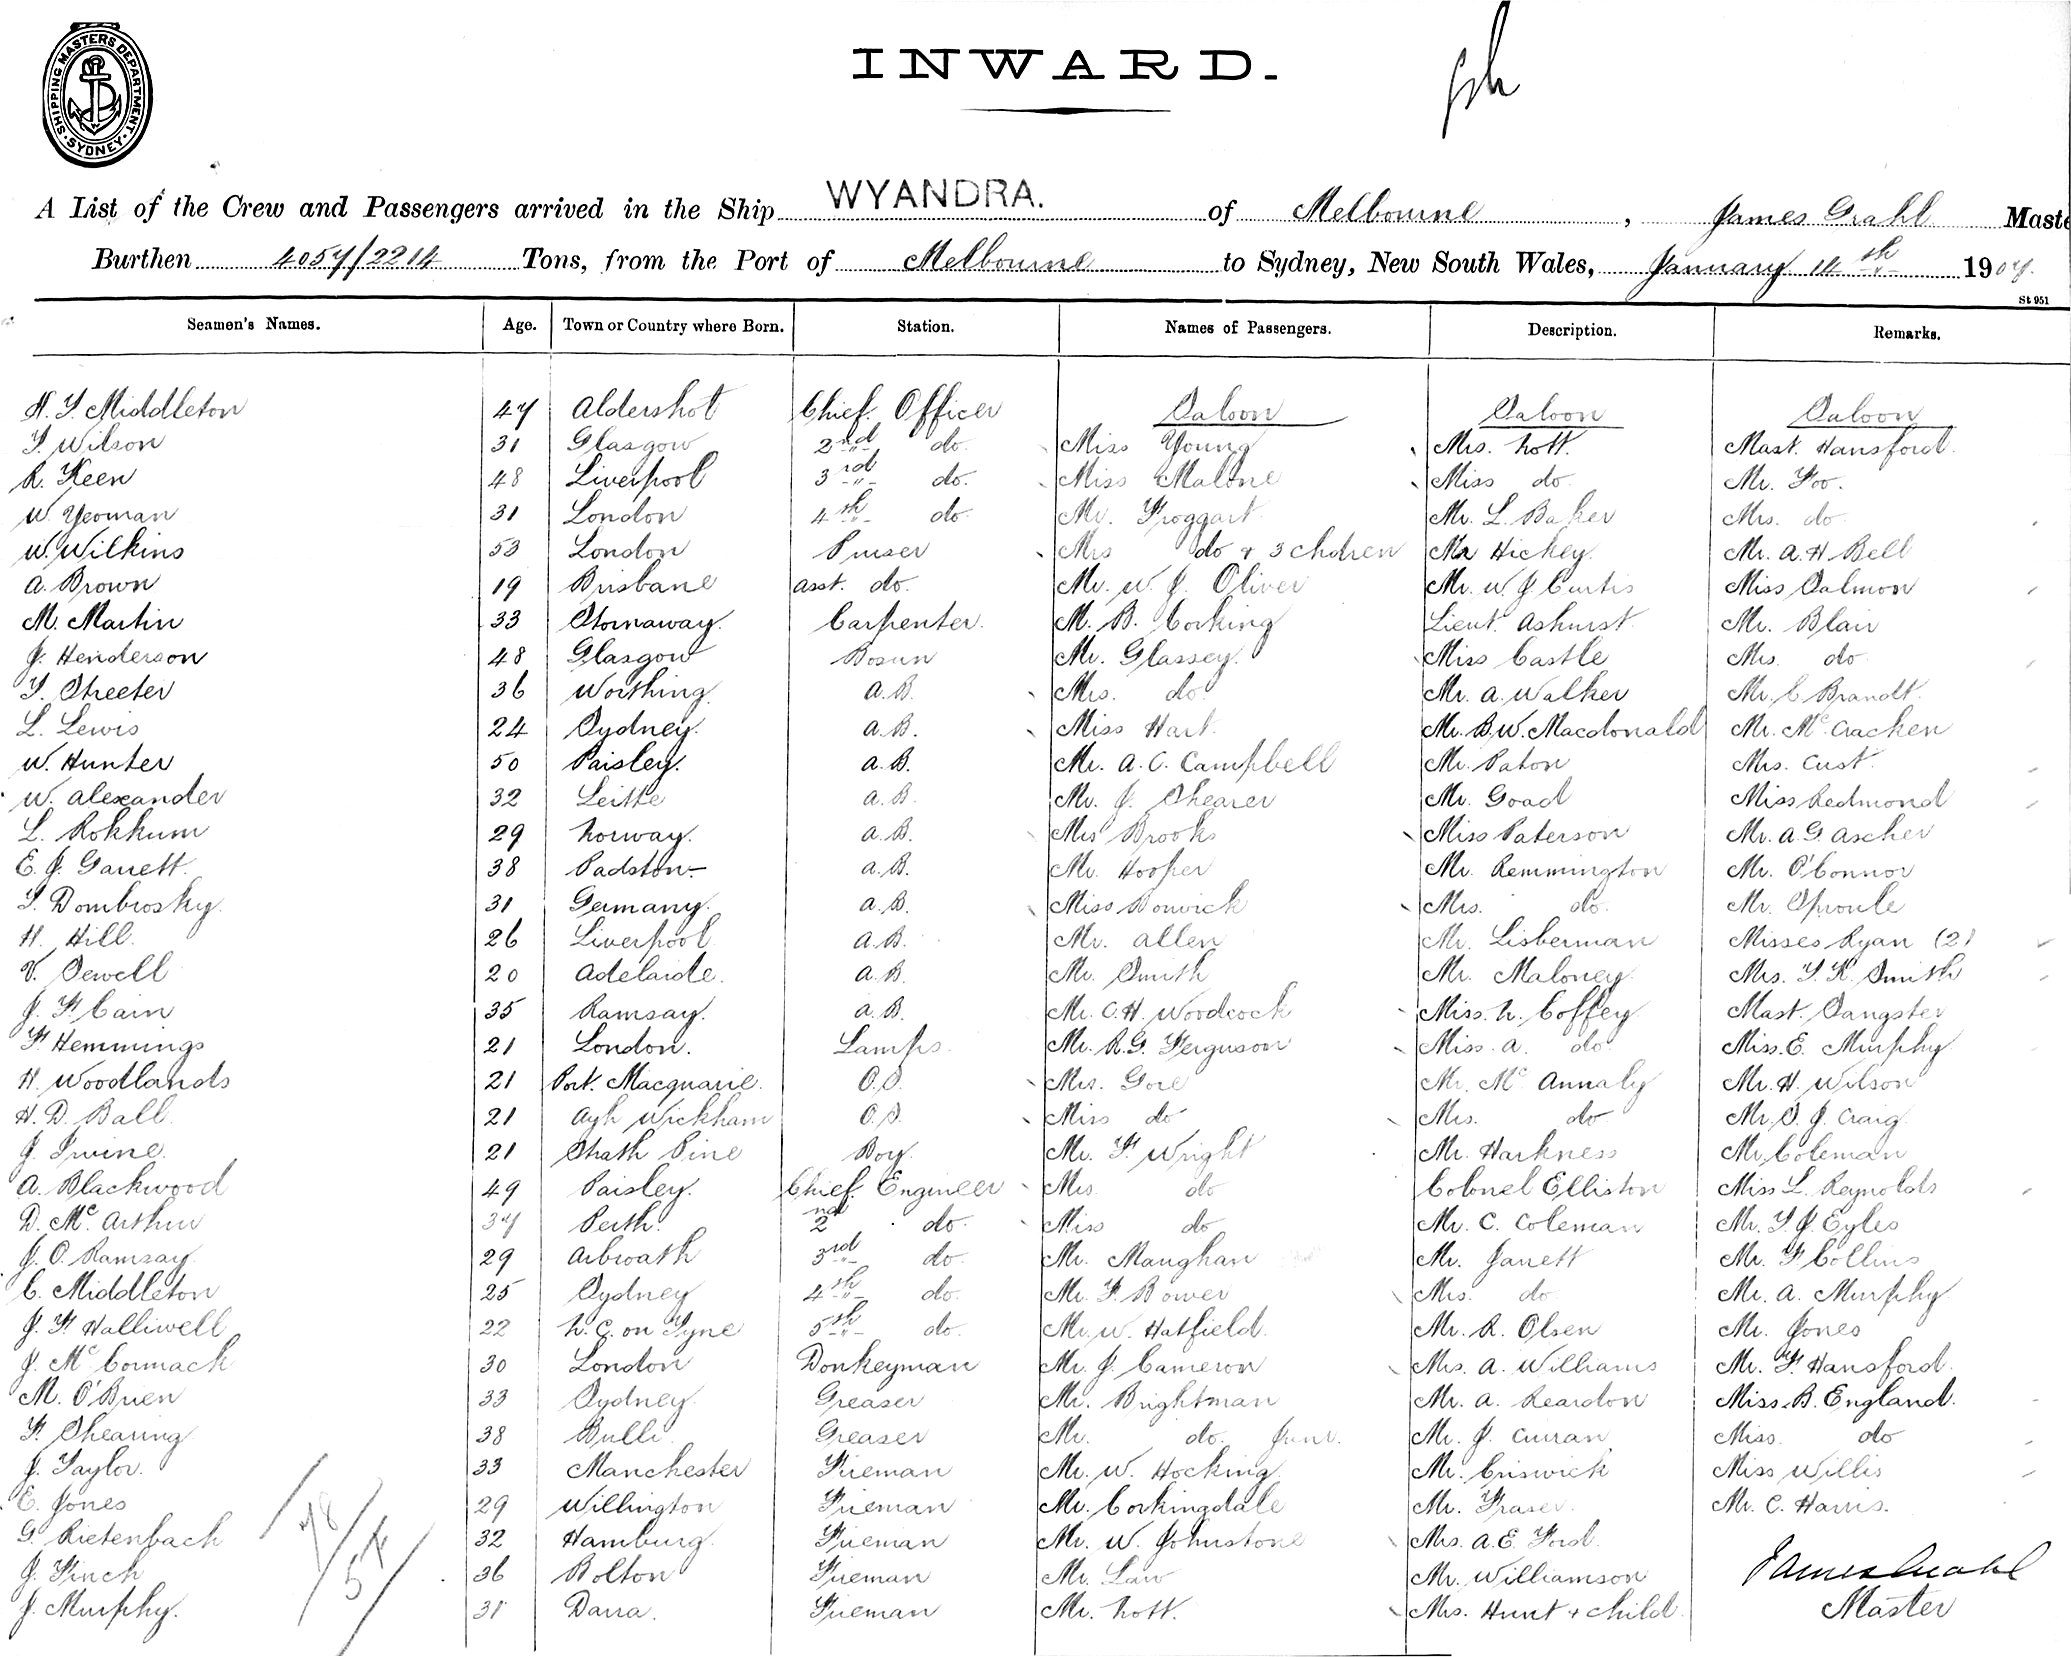 SHIPPING MASTERS DEPARTMENT. SYDNEY
INWARD.
A List of the Crew and Passengers arrived in the Ship WYANDRA. of Melbourne, James Grahl Maste
Burthen 4057/2214 Tons, from the Port of Melbourne to Sydney, New South Wales, January 14th 1907.
St 951
Seamen's Names. Age. Town or Country where Born. Station. Names of Passengers. Description. Remarks.
H. T. Middleton 47 Aldershot Chief Officer Saloon Saloon Saloon
T. Wilson 31 Glasgow 2nd do. Miss Young Mrs. Nott. Mast. Hansford.
R. Keen 48 Liverpool 3rd do. Miss Malone Miss do. Mr. Foo.
W. Yeoman 31 London 4th do. Mr. Froggart Mr. L. Baker Mrs. do
W. Wilkins 53 London Purser Mrs do & 3 chdren Mr Hickey. Mr. A. H. Bell
A. Brown 19 Brisbane Asst. do. Mr. W. J. Oliver Mr. W. J. Curtis Miss Salmon
M. Martin 33 Stornaway. Carpenter. M. B. Corking Lieut. Ashurst. Mr. Blair
J. Henderson 48 Glasgow Bosun Mr. Glassey. Miss Castle Mrs. do
T. Streeter 36 Worthing. A.B. Mrs. do. Mr. A. Walker Mr. C Brandt.
L. Lewis 24 Sydney. A.B. Miss Hart. Mr. B. W. Macdonald Mr. McCracken
W. Hunter 50 Paisley. A.B. Mr. A. C. Campbell Mr. Paton Mrs. Cust.
W. Alexander 32 Leithe A.B. Mr. J. Shearer Mr. Goad Miss Redmond
L. Rokkum 29 Norway. A.B. Mrs Brooks Miss Paterson Mr. A. G. Ascher
E. J. Garrett. 38 Padston- A.B. Mr. Hooper Mr. Remmington Mr. O'Connor
T. Dombrosky. 31 Germany. A.B. Miss Bonwick Mrs. do. Mr. Sproule
H. Hill. 26 Liverpool A.B. Mr. Allen Mr. Lisberman Misses Ryan (2)
V. Sewell 20 Adelaide. A.B. Mr. Smith Mr. Maloney. Mrs. T. K. Smith
J. F. Cain 35 Ramsay. A.B. Mr. C. H. Woodcock Miss. N. Coffey Mast. Sangster
F. Hemmings 21 London. Lamps. Mr. R. G. Ferguson Miss. A. do Miss. E. Murphy.
H. Woodlands 21 Port. Macquarie. O.S. Mrs. Gore Mr. McAnnaly Mr. H. Wilson
H. D. Ball. 21 Wickham O.S. Miss do Mrs. do Mr. S. J. Craig.
J. Irvine. 21 Strath Pine Boy. Mr. F. Wright Mr. Harkness Mr. Coleman
A. Blackwood 49 Paisley. Chief Engineer Mrs do Colonel Elliston Miss L. Reynolds
D. McArthur 37 Perth. 2nd do. Miss do Mr. C. Coleman Mr. T. J. Eyles
J. O. Ramsay. 29 Arbroath 3rd do. Mr. Maughan Mr. Jarrett Mr. F. Collins
C. Middleton 25 Sydney 4th do. Mr. F. Bower Mrs. do. Mr. A. Murphy.
J. F. Halliwell 22 N. C. on Tyne 5th do. Mr. W. Hatfield. Mr. R. Olsen Mr. Jones
J. McCormack 30 London Donkeyman Mr. J. Cameron Mrs. A. Williams Mr. F. Hansford.
M. O'Brien 33 Sydney. Greaser Mr. Brightman Mr. A. Reardon Miss. B. England.
F. Shearing 38 Bulli. Greaser Mr. do. Junr. Mr. J. Curran Miss. do
J. Taylor. 33 Manchester Fireman Mr. W. Hocking. Mr. Criswick Miss Willis
E. Jones 29 Willington Fireman Mr. Corkingdale Mr. Fraser. Mr. C. Harris.
G. Rietenbach 32 Hamburg. Fireman Mr. W. Johnstone Mrs. A. E. Ford.
J. Finch 36 Bolton Fireman Mr. Law Mr. Williamson James Grahl
J. Murphy. 31 Darra. Fireman Mr. Nott. Mrs. Hunt & child. Master